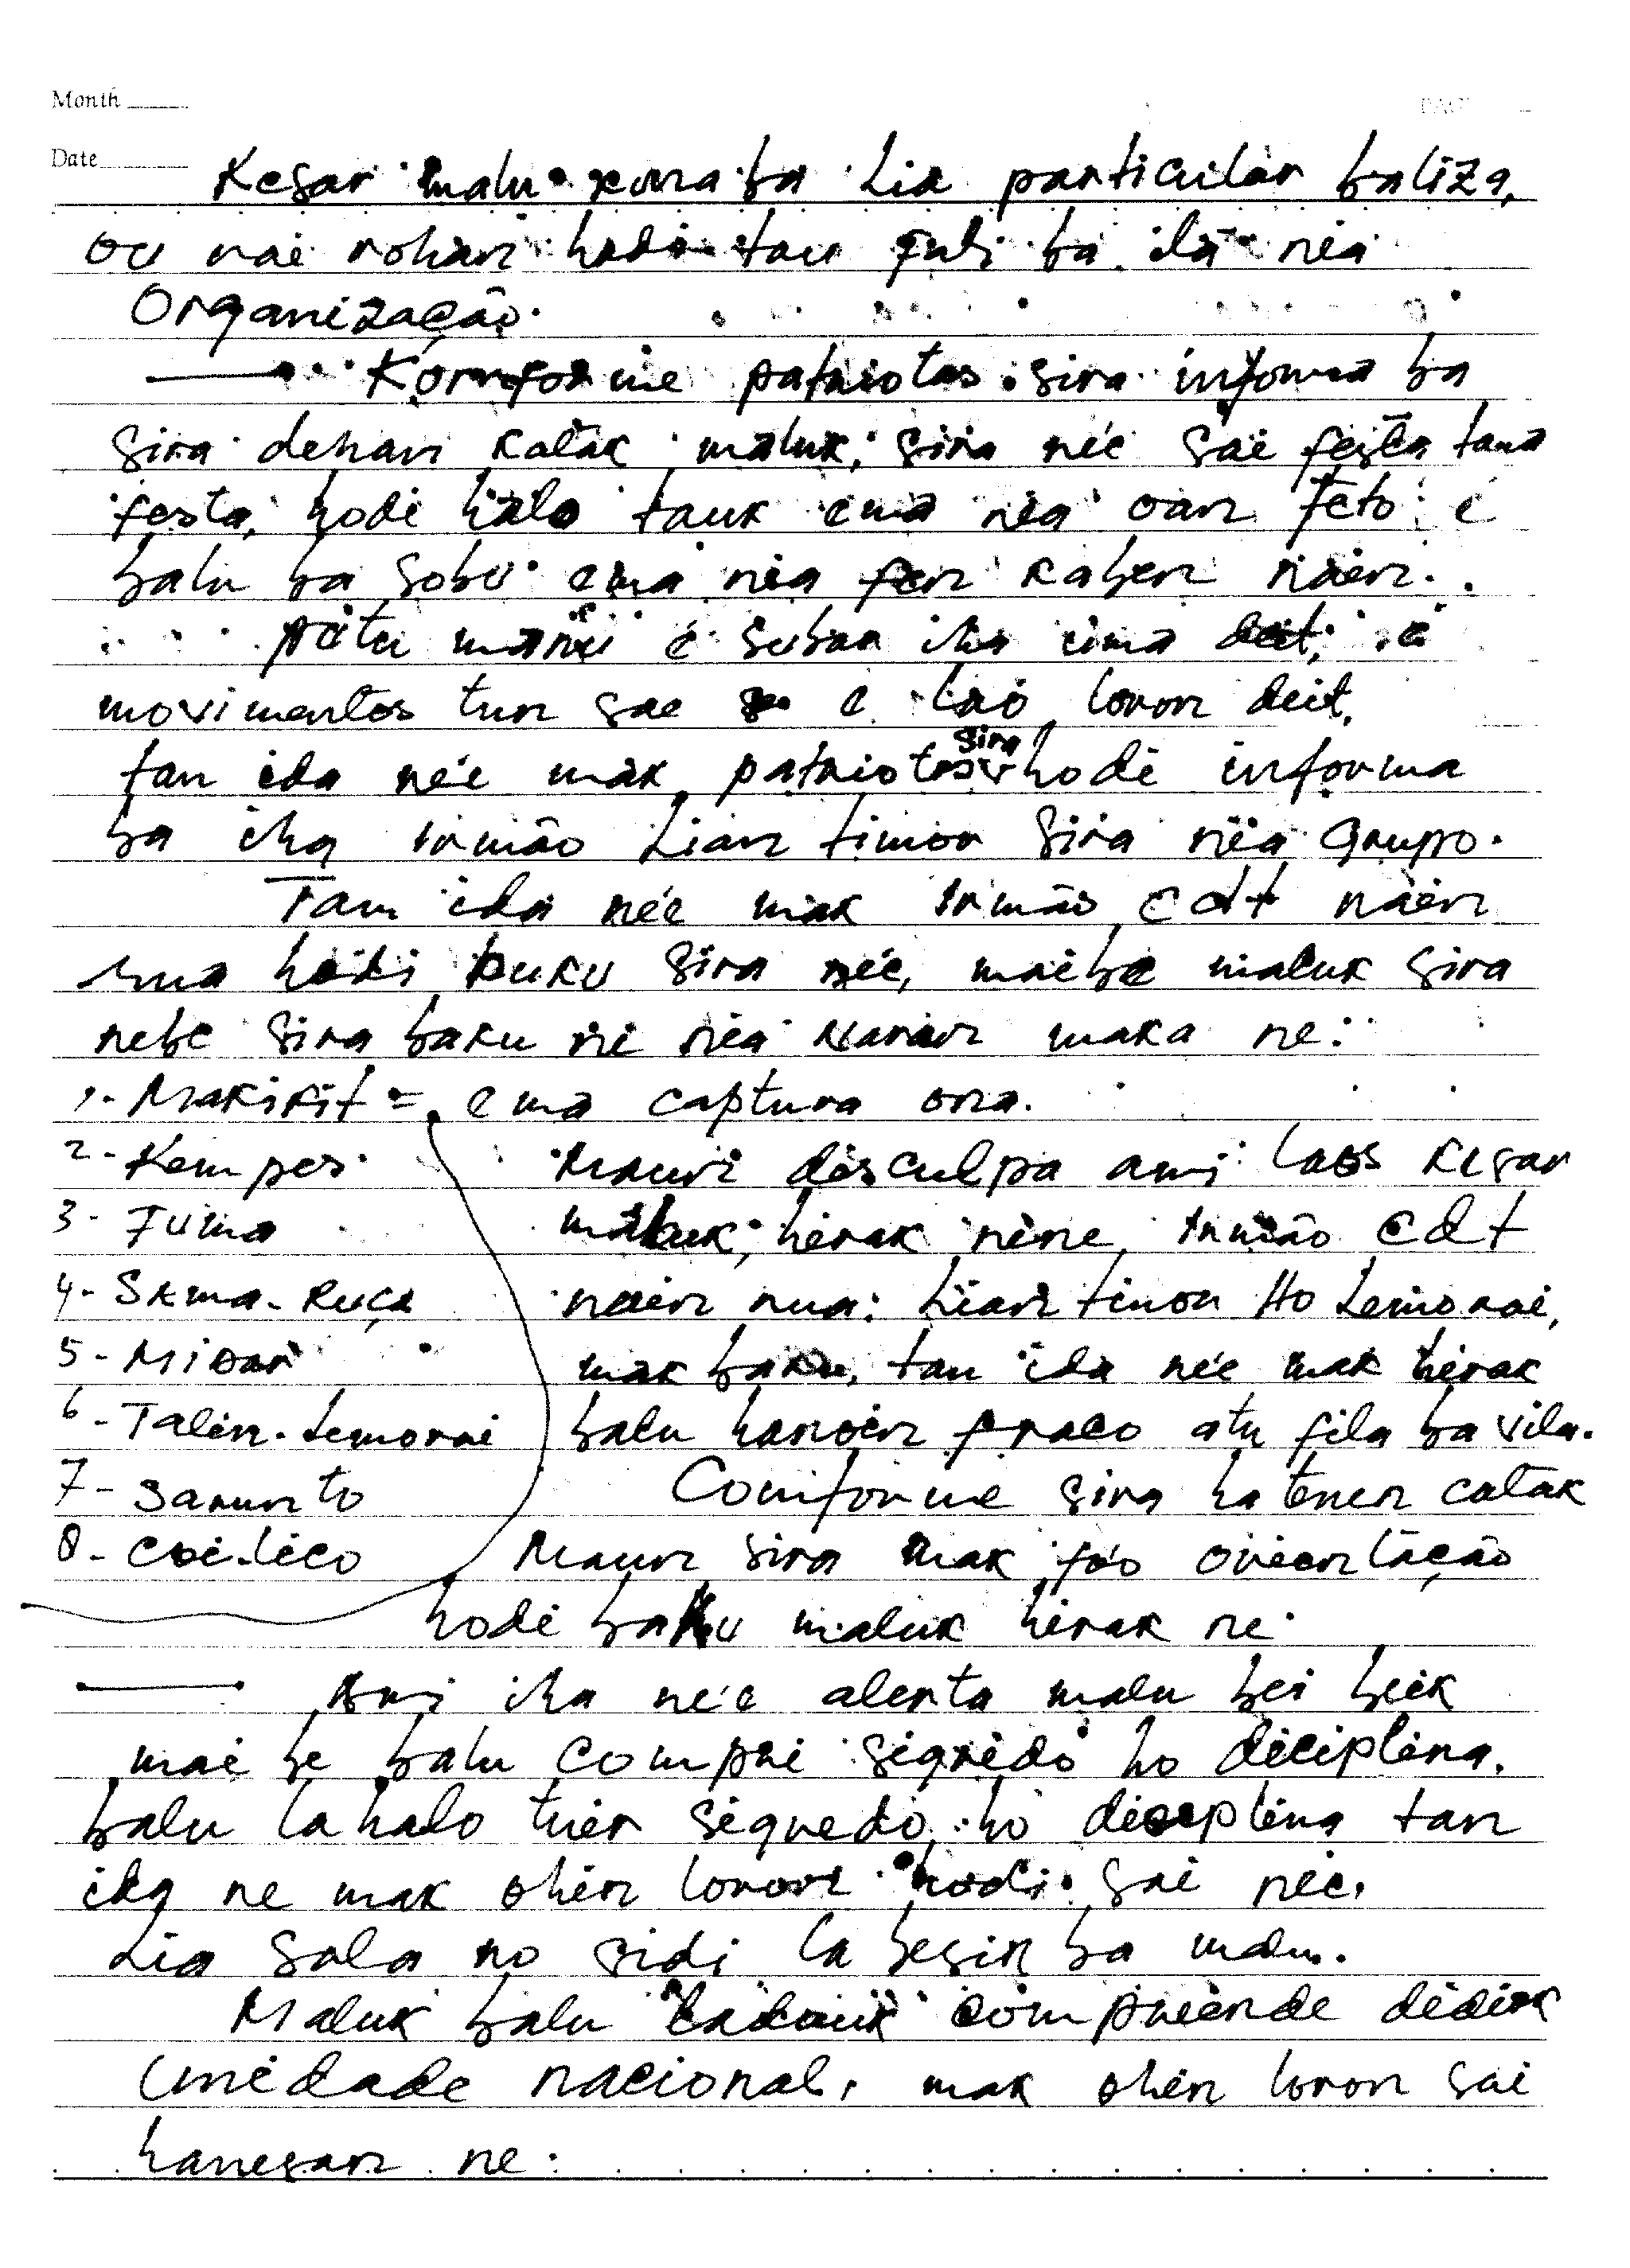 Month
Date
Kesar malu kona ba Lia particular baliza,
ou rai rohan hodi tau fali ba ida nia
Organização.
Komforme patriotas sira informa ba
sira dehan katak maluk, sira né'e sae festa tama
festa, hodi halo tauk ema nia oan feto e
balu ba sobu ema nia fen kaben naen.
futu manu e subar iha uma deit, e
movimentos tun sae e lao loron deit,
tan ida né'e mak patriotas sira hodi informa
ba iha Irmão Lian timor sira nia Grupo.
Tam ida né'e mak Irmão cdt naen
rua hodi buku sira né'e, maibe maluk sira
nebe sira baku ne nia naran maka ne:
1- Makikit = ema captura ona.
2- Kempes
3- Fuma
4- Skma-Ruça
5- Midar
6- Talin-Lemorai
7- Sarunto
8- Coi-Leco
Maun desculpa ami laos kesar
maluk, hirak nene, Irmão Cdt
naen rua: Lian timor Ho Lemorai,
mak baku, tan ida né'e mak hirak
balu hanoin fraco atu fila ba vila.
Comforme sira hatenen catak
Maun sira mak fó'o orientação
hodi baku maluk hirak ne.
Ami iha né'e alerta malu bei beik
mai be balu compri sigredo ho diciplina.
balu la halo tuir sigredo, ho disciplina tan
ida ne mak ohin loron hodi sai né'e.
Lia sala no sidi la besik ba malu.
Maluk balu ladauk compriende didiak
Unidade nacional, mak ohin loron sai
hanesan ne.